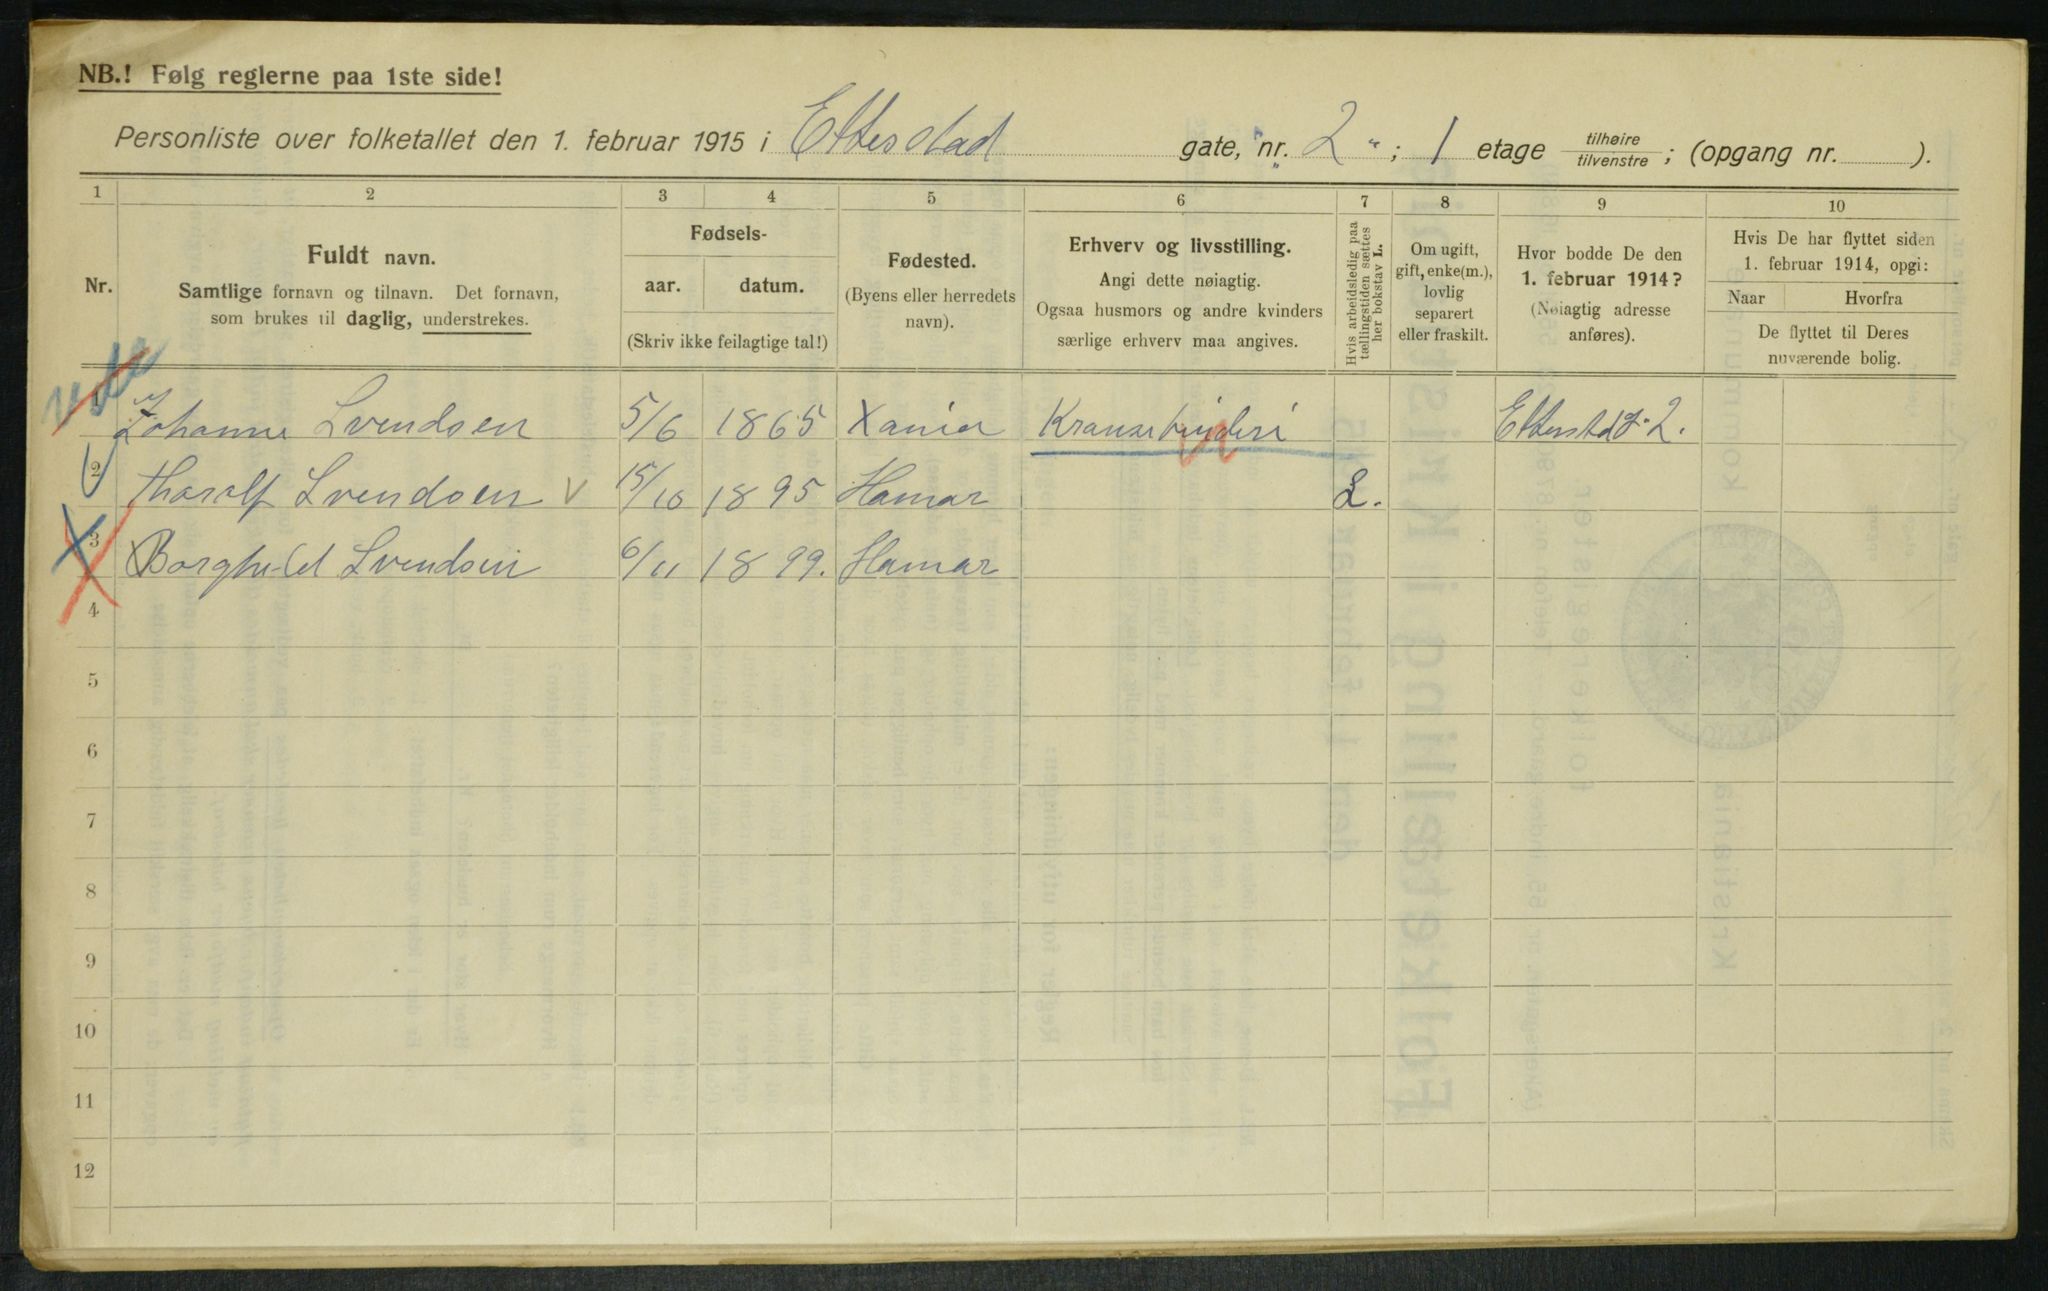 NB.! Følg reglerne paa 1ste side!
Personliste over folketallet den 1. februar 1915 i Ettersstad gate, nr. 2 " ; 1 etage tilhøire tilvenstre ; (opgang nr. ).
1 2 3 4 5 6 7 8 9 10
Nr.
Fuldt navn.
Samtlige fornavn og tilnavn. Det fornavn,
som brukes til daglig, understrekes.
Fødsels-
aar. datum.
(Skriv ikke feilagtige tal!)
Fødested.
(Byens eller herredets
navn).
Erhverv og livsstilling.
Angi dette nøiagtig.
Ogsaa husmors og andre kvinders
særlige erhverv maa angives.
Hvis arbeidsledig paa
tællingstiden sættes
her bokstav L.
Om ugift,
gift, enke(m.),
lovlig
separert
eller fraskilt.
Hvor bodde De den
1. februar 1914?
(Nøiagtig adresse
anføres).
Hvis De har flyttet siden
1. februar 1914, opgi:
Naar Hvorfra
De flyttet til Deres
nuværende bolig.
1 Johanne Svendsen 5/6 1865 Xania Kransebinderi Etterstad g. 2.
2 Thoralf Svendsen V 15/10 1895 Hamar L.
3 Borghild Svendsen 6/11 1899. Hamar
4
5
6
7
8
9
10
11
12